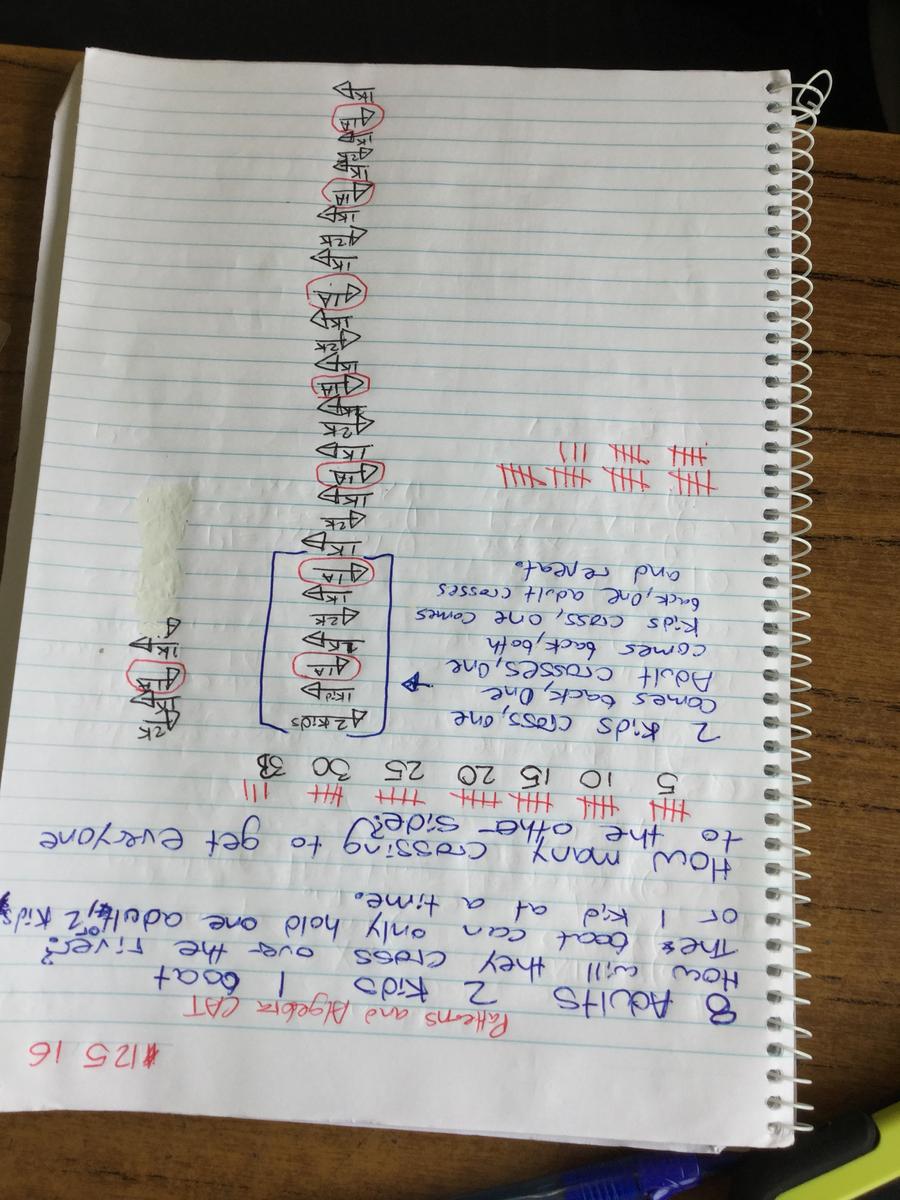 12 5 16
Patterns and Algebra CAT
8 Adults 2 kids 1 boat
How will they cross over the river?
The boat can only hold one adult, or 2 kids
or 1 kid at a time.
How many crossing to get everyone
to the other side?
5 10 15 20 25 30 33
2 kids cross, one
comes back, one
Adult crosses, one
comes back, both
kids cross, one comes
back, one adult crosses
and repeat.
2 kids
1 kid
1A
1k
2k
1k
1A
1k
2k
1k
1A
1k
2k
1k
1A
1k
2k
1k
1A
1k
2k
1k
1A
1k
2k
1k
1A
1k
2k
1k
1A
1k